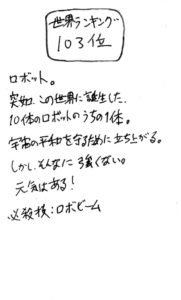 世界ランキング
103位
ロボット。
突如、この世界に誕生した、
10体のロボットのうちの1体。
宇宙の平和を守るために立ち上がる。
しかし、そんなに強くない。
元気はある!
必殺技:ロボビーム